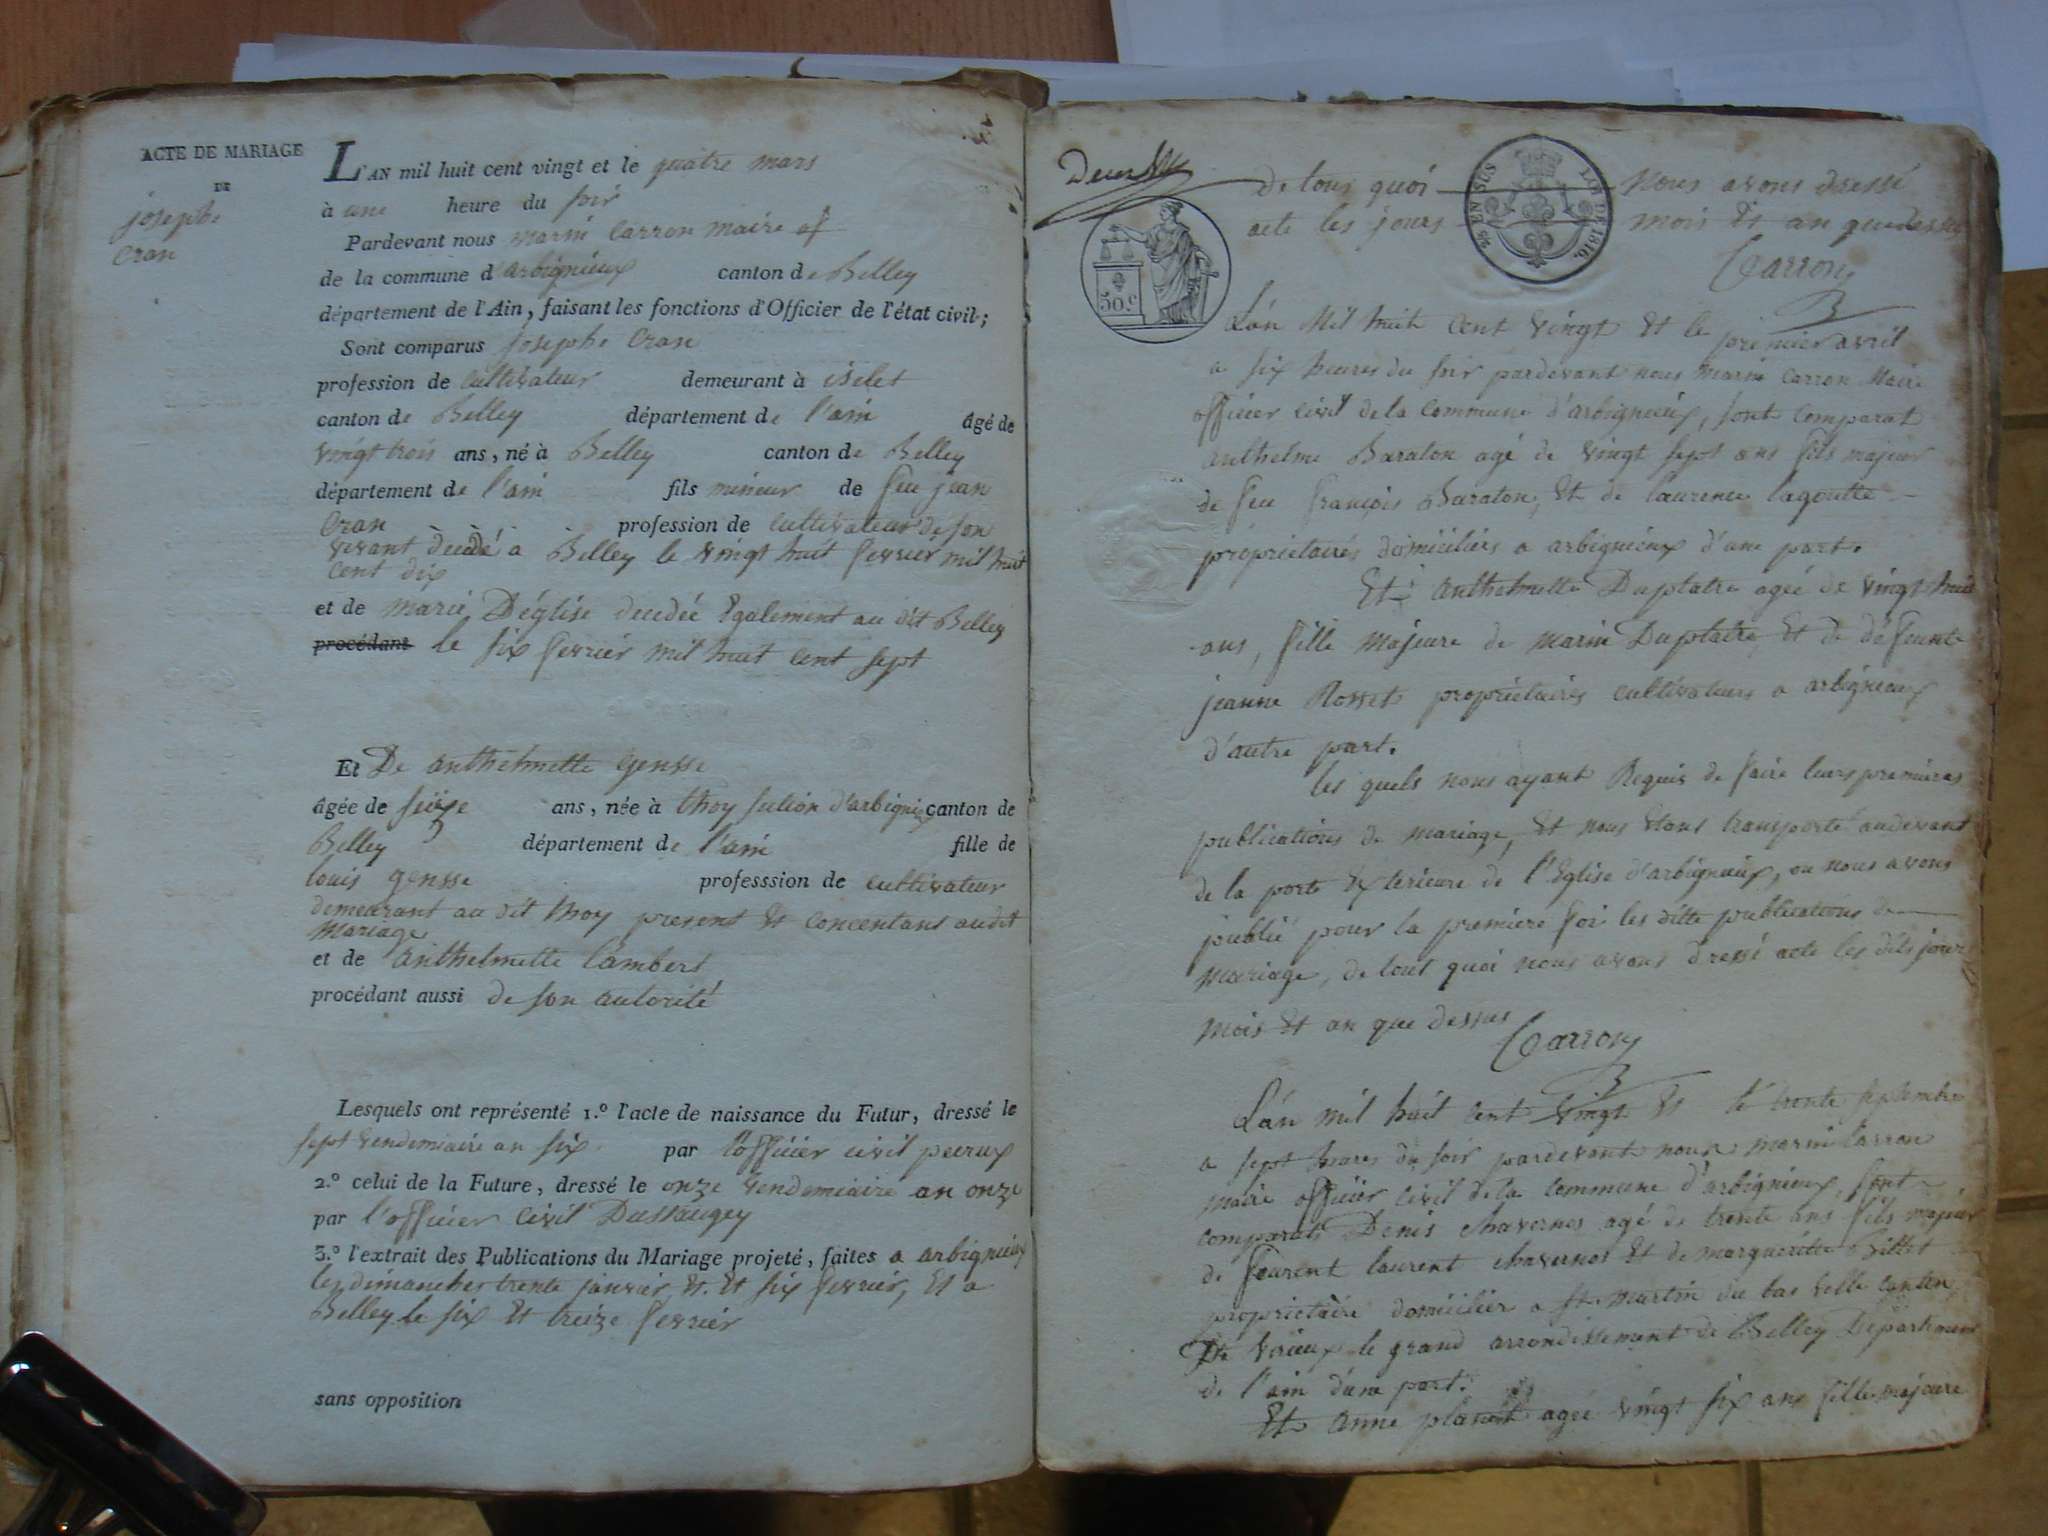 ACTE DE MARIAGE
DE
josephe
Cran
L'AN mil huit cent vingt et le quatre mars
à une heure du soir
Pardevant nous marin Carron maire of
de la commune d'arbignieux canton de Belley
département de l'Ain, faisant les fonctions d'Officier de l'état civil;
Sont comparus josephe Cran
profession de cultivateur demeurant à
canton de Belley département de l'ain âgé de
vingt trois ans, né à Belley canton de Belley
département de l'ain fils mineur de feu jean
Cran profession de cultivateur de son
vivant décédé a Belley le vingt huit fevrier mil huit
cent dix
et de marie D'église decedée Egalement au dit Belley
procédant le six fevrier mil huit cent sept
Et De anthelmette Gensse
âgée de seize ans, née à thoy d'arbignieux canton de
Belley département de l'ain fille de
louis gensse professsion de cultivateur
demeurant au dit thoy present Et concentant audit
mariage
et de anthelmette lambert
procédant aussi de son autorité
Lesquels ont représenté 1.º l'acte de naissance du Futur, dressé le
sept vendemiaire an six par l'officier civil peirux
2.º celui de la Future, dressé le onze vendemiaire an onze
par l'officier civil Dussaugey
3.º l'extrait des Publications du Mariage projeté, faites a arbignieux
les dimanches trente janvier, Et six fevrier, Et a
Belley le six Et treize fevrier
sans opposition
de tout quoi nous avons dressé
acte les jours mois Et an que dessus
EN SUS LOI DE 1816.
50.c
Carron
L'an Mil huit cent vingt Et le premier avril
a six heures du soir pardevant nous marin Carron Maire
officier civil de la Commune d'arbignieux, sont comparut
anthelme Baraton agé de vingt sept ans fils majeur
de feu françois Baraton, Et de laurence lagoutte
propriétaires domiciliés a arbignieux d'une part.
Et anthelmette Duplatre agée de vingt huit
ans, fille majeure de marin Duplatre, Et de défunte
jeanne Rosset propriétaires cultivateurs a arbignieux
d'autre part.
les quels nous ayant Requis de faire leurs premières
publications de mariage, Et nous Etant transporté audevant
de la porte Exterieure de l'Eglise d'arbignieux, ou nous avons
publié pour la premiere foi les ditte publications de
mariage, de tout quoi nous avons dressé acte les dits jours
mois Et an que dessus
Carron
L'an mil huit cent vingt Et le trente septembre
a sept heures du soir pardevant nous marin Carron
maire officier civil de la commune d'arbignieux, sont
comparuts Denis chavernos agé de trente ans fils majeur
de laurent chavernos Et de marguéritte Billet
proprietaire domicilier a St. Martin du bas velle canton
De virieux le grand arrondissement de Belley Département
de l'ain d'une part.
Et anne agée vingt six ans fille majeure